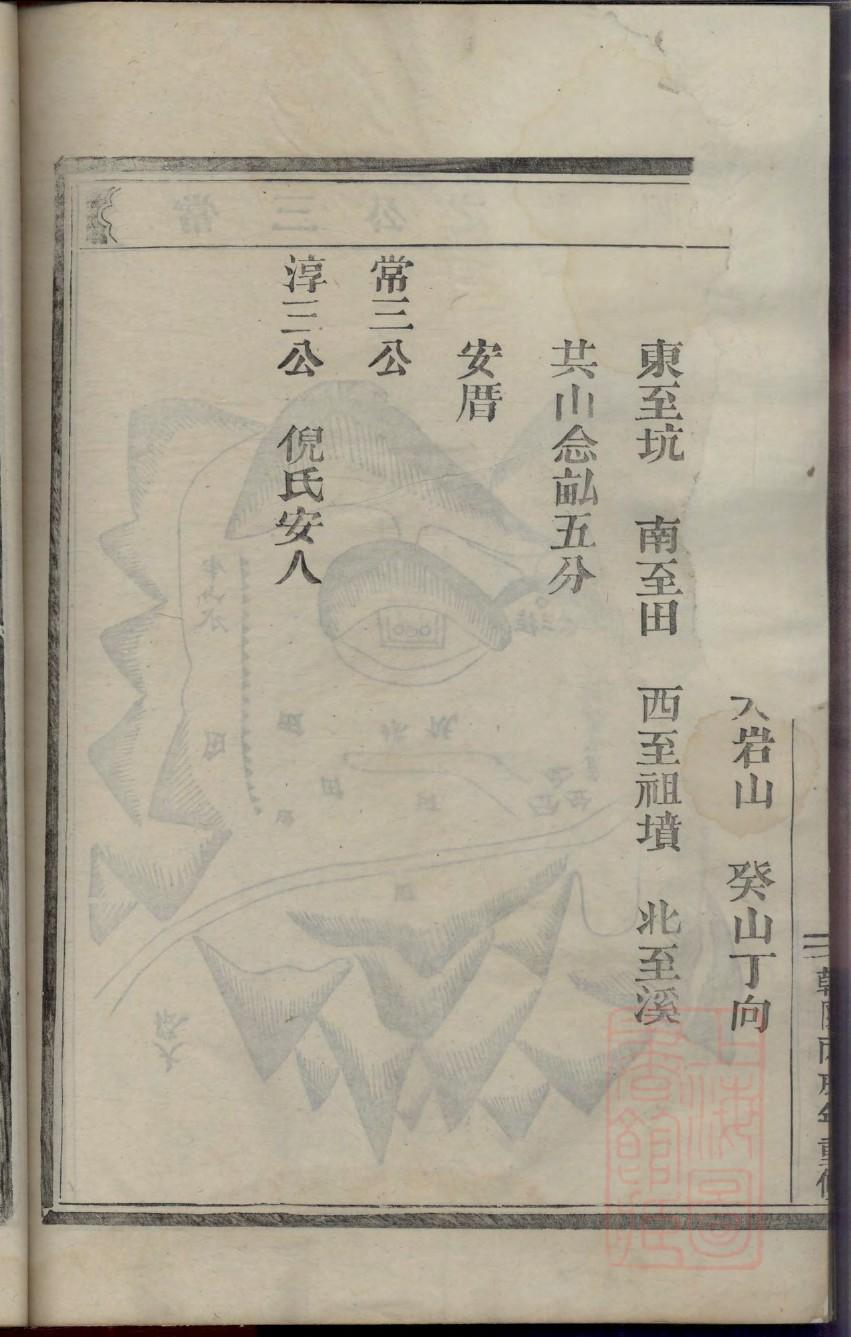 岩山 癸山丁向
東至坑 南至田 西至祖墳 北至溪
共山念畝五分
安厝
常三公
淳三公 倪氏安人